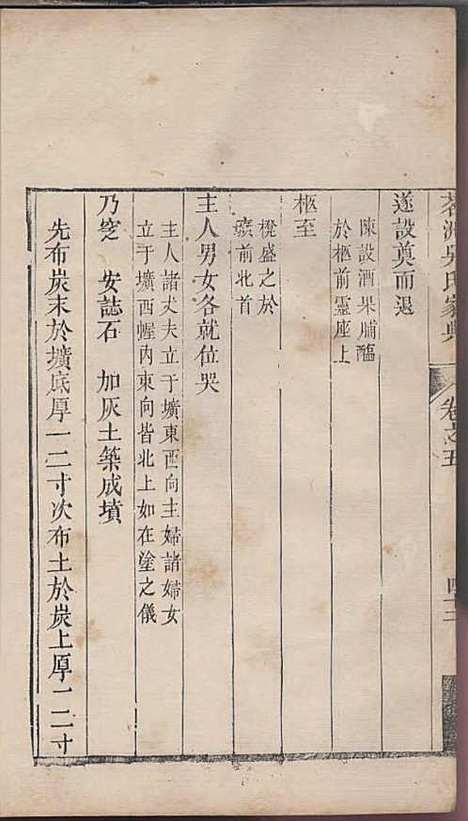 茗洲吳氏家典
卷之五
四十二
遂設奠而退
陳設酒果脯醢
於柩前靈座上
柩至
櫈盛之於
壙前北首
主人男女各就位哭
主人諸丈夫立于壙東西向主婦諸婦女
立于壙西幄內東向皆北上如在塗之儀
乃窆　安誌石　加灰土築成墳
先布炭末於壙底厚一二寸次布土於炭上厚一二寸